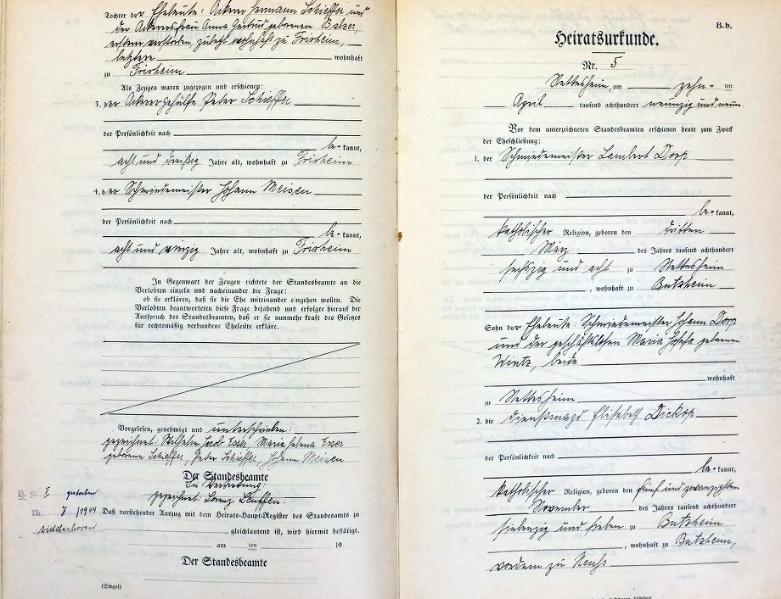 Tochter der Eheleute: Ackerer Hermann Schieffer und
der Ackerersfrau Anna Gertrud geborenen Balzer,
ersterer verstorben, zuletzt wohnhaft zu Frixheim,
letztere wohnhaft
zu Frixheim
Als Zeugen waren zugezogen und erschienen:
3. der Ackerergehülfe Peter Schieffer
der Persönlichkeit nach
be- kannt,
acht und dreißig Jahre alt, wohnhaft zu Frixheim
4. der Schmiedemeister Johann Meisen
der Persönlichkeit nach
be- kannt,
acht und vierzig Jahre alt, wohnhaft zu Frixheim
In Gegenwart der Zeugen richtete der Standesbeamte an die
Verlobten einzeln und nacheinander die Frage:
ob sie erklären, daß sie die Ehe miteinander eingehen wollen. Die
Verlobten beantworteten diese Frage bejahend und erfolgte hierauf der
Ausspruch des Standesbeamten, daß er sie nunmehr kraft des Gesetzes
für rechtsmäßig verbundene Eheleute erkläre.
Vorgelesen, genehmigt und unterschrieben:
gezeichnet: Wilhelm Esser Maria Helena Esser
geborene Schieffer, Peter Schieffer, Johann Meisen
Der Standesbeamte
In Vertretung:
gezeichnet: Lenz
Daß vorstehender Auszug mit dem Heirats-Haupt-Register des Standesamts zu
gleichlautend ist, wird hiermit bestätigt.
am ten 19
Der Standesbeamte
(Siegel)
I
Nr. 7/1944
B. b.
Heiratsurkunde.
Nr. 5
Nettesheim, am zehn- ten
April tausend achthundert neunzig und neun
Vor dem unterzeichneten Standesbeamten erschienen heute zum Zweck
der Eheschließung:
1. der Schmiedemeister Lambert Dorp
der Persönlichkeit nach
be- kannt,
katholischer Religion, geboren den dritten
März des Jahres tausend achthundert
sechzig und acht zu Nettesheim
, wohnhaft zu Butzheim
Sohn der Eheleute: Schmiedemeister Johann Dorp
und der geschäftslosen Maria Josefa geborenen
Wintz, beide
wohnhaft
zu Nettesheim
2. die Dienstmagd Elisabeth Dickop
der Persönlichkeit nach
be- kannt,
katholischer Religion, geboren den fünf und zwanzigsten
November des Jahres tausend achthundert
siebenzig und sieben zu Butzheim
, wohnhaft zu Butzheim,
vordem zu Neuss